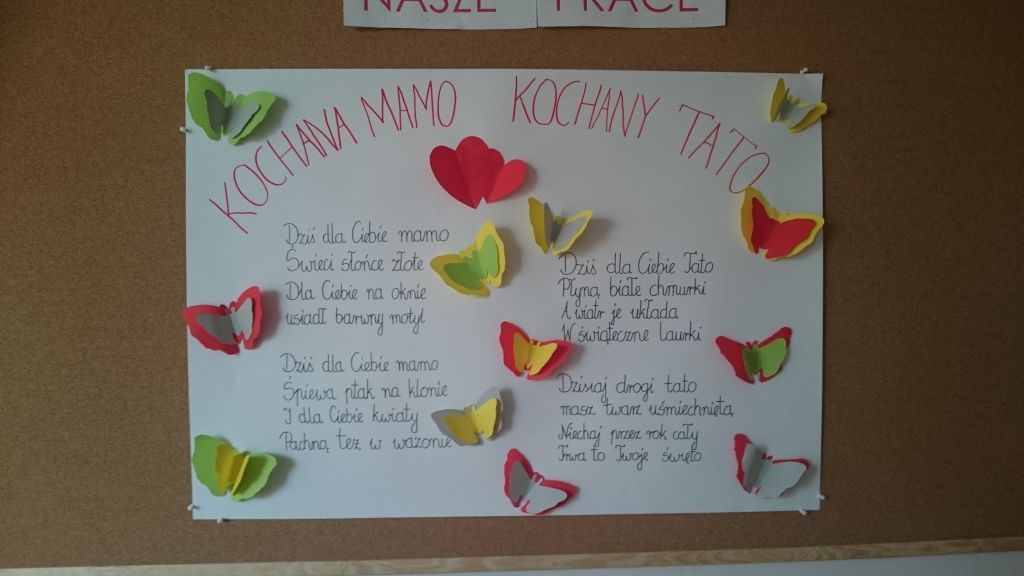 NASZE PRACE
KOCHANA MAMO KOCHANY TATO
Dziś dla Ciebie mamo
Świeci słońce złote
Dla Ciebie na oknie
usiadł barwny motyl
Dziś dla Ciebie mamo
Śpiewa ptak na klonie
I dla Ciebie kwiaty
Pachną też w wazonie
Dziś dla Ciebie Tato
Płyną białe chmurki
A wiatr je układa
W świąteczne laurki
Dzisiaj drogi tato
masz twarz uśmiechniętą,
Niechaj przez rok cały
Trwa to Twoje święto